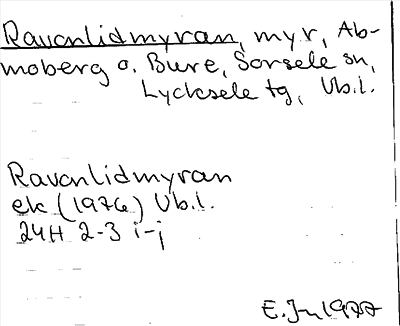 Ravonlidmyran, myr, Ab-
moberg o. Bure, Sorsele sn,
Lycksele tg, Vb.l.
Ravonlidmyran
ek (1976) Vb.l.
24H 2-3 i-j
E. Jn 1977